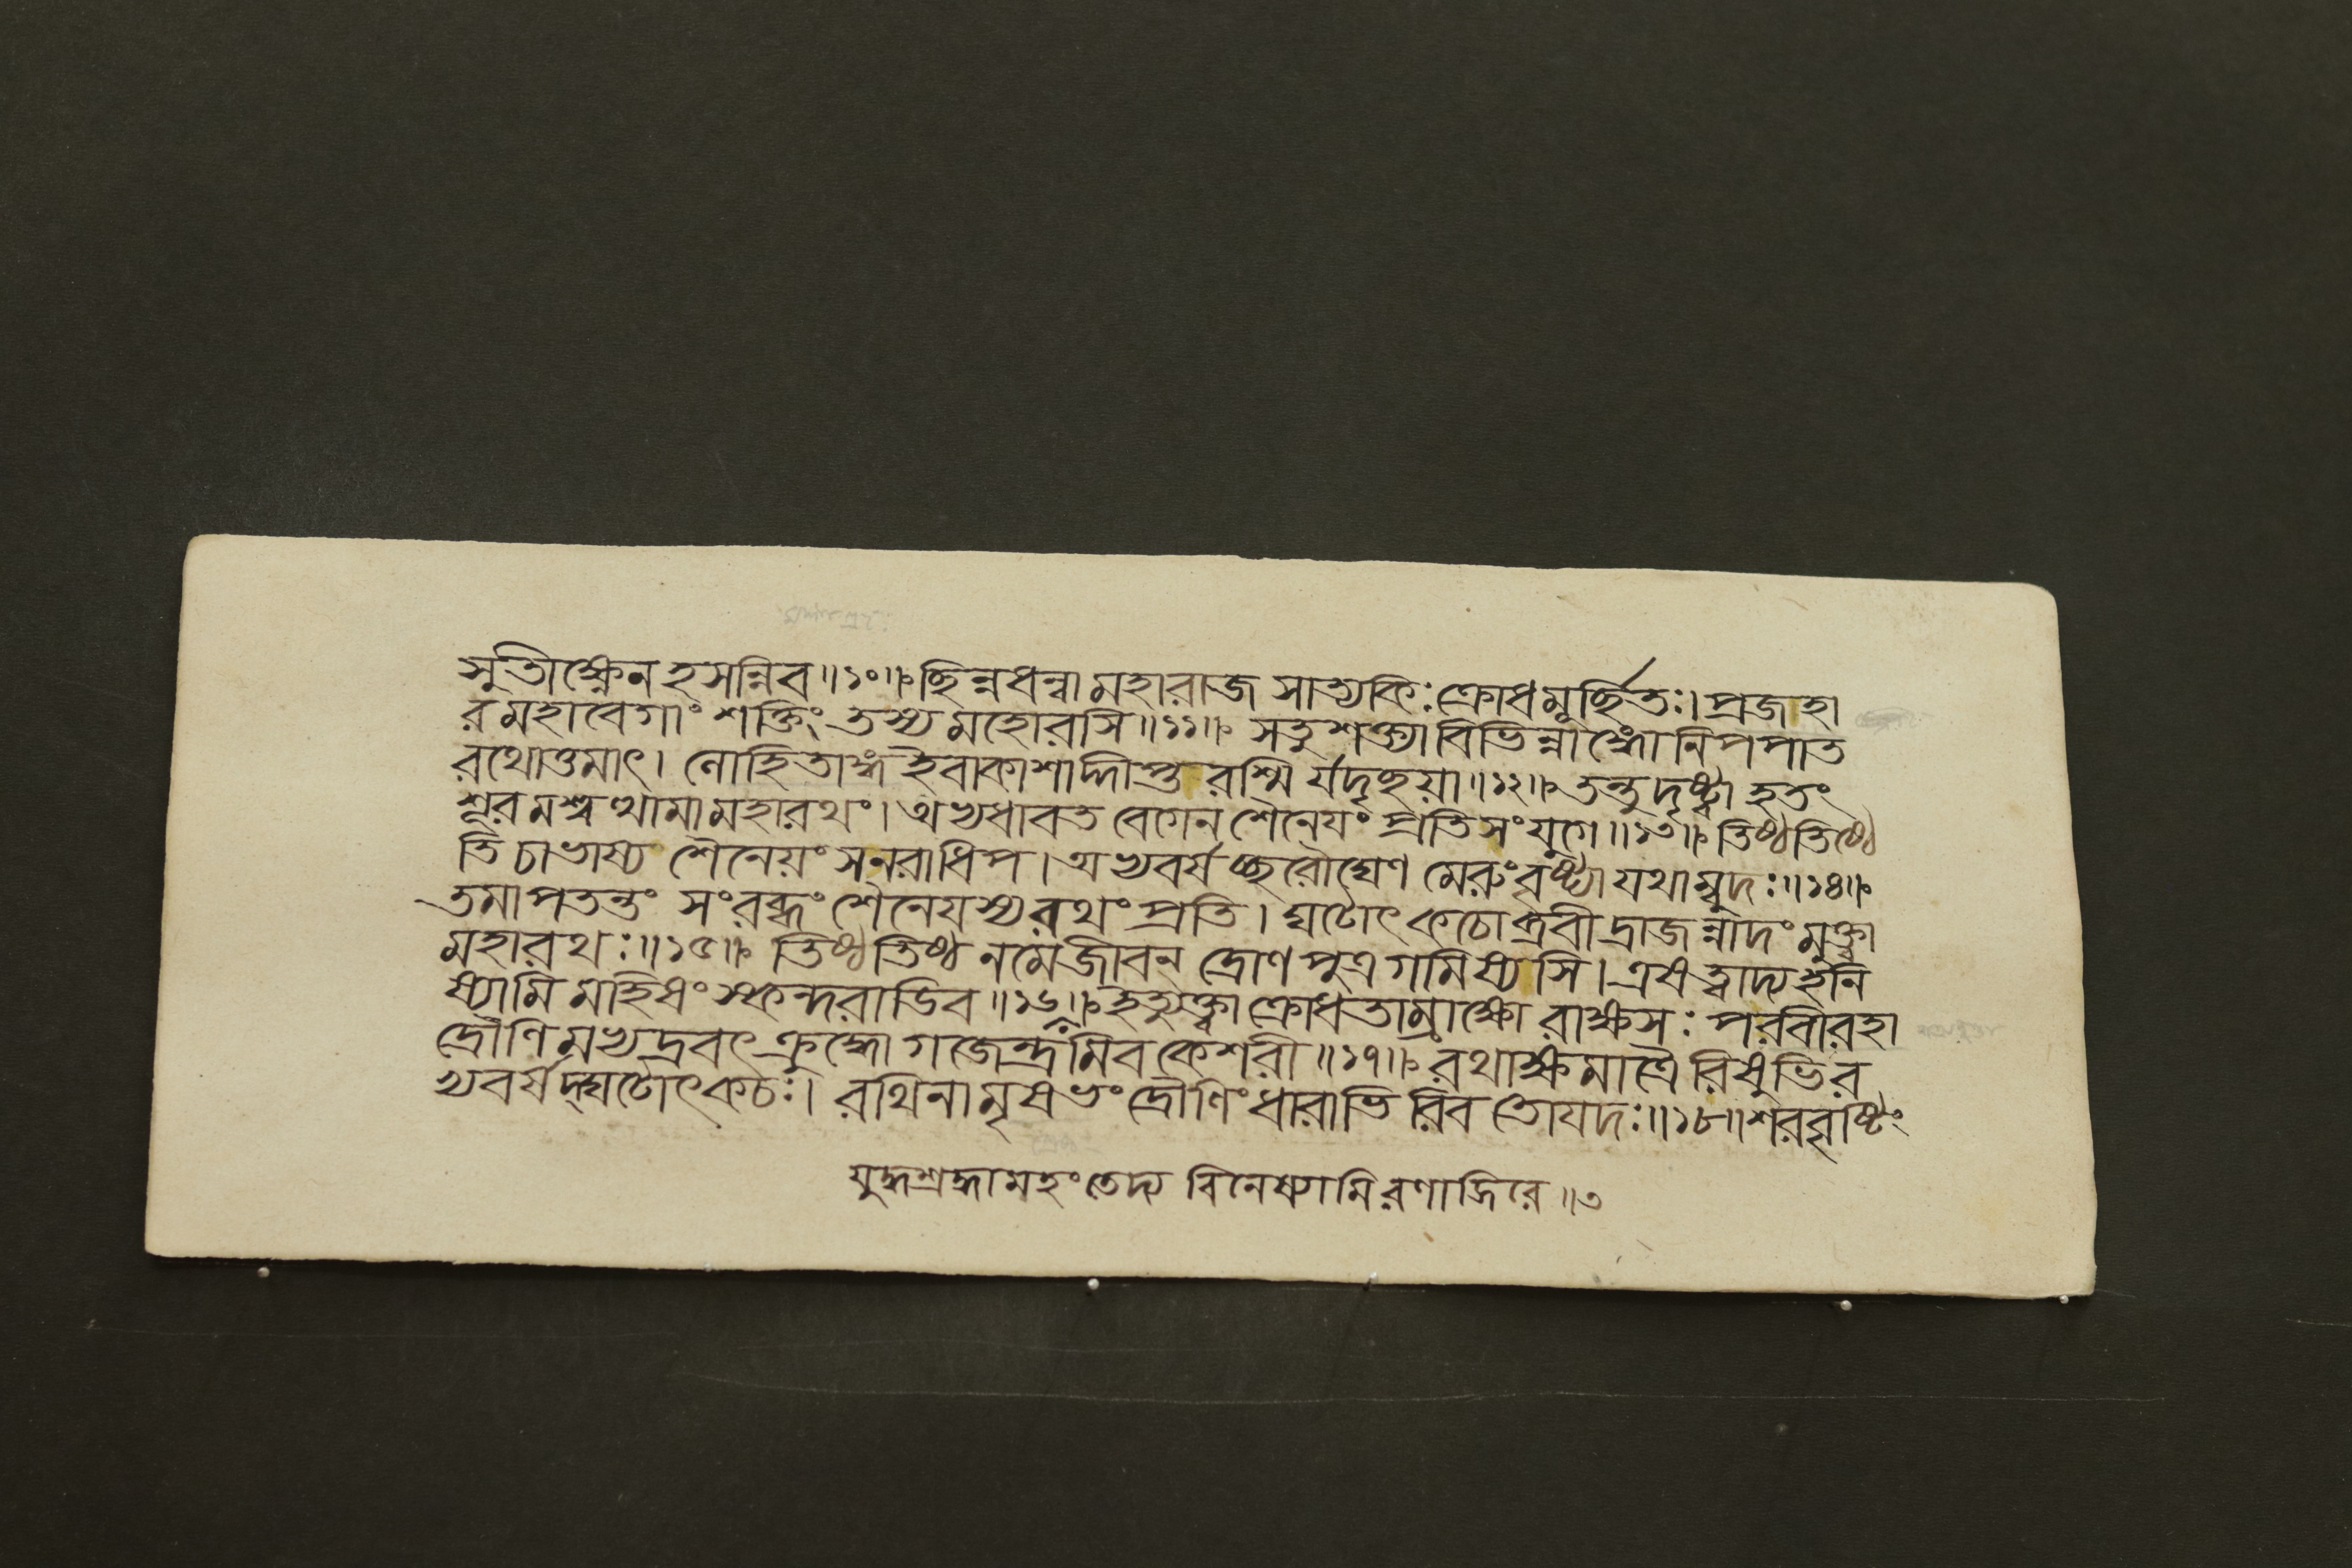 সুতীক্ষ্ণেন হসন্নিব॥১০॥ ছিন্নধন্বা মহারাজ সাত্যকিঃ ক্রোধমূর্চ্ছিতঃ। প্রজহা
র মহাবেগাং শক্তিং তস্য মহোরসি॥১১॥ সতু শক্ত্যা বিভিন্নাঙ্গো নিপপাত
রথোত্তমাৎ। লোহিতাঙ্গ ইবাকাশাদ্দীপ্তরশ্মির্যদৃচ্ছয়া॥১২॥ তন্তু দৃষ্ট্বা হতং
শূরমশ্বত্থামা মহারথং। অভ্যধাবত বেগেন শৈনেযং প্রতি সংযুগে॥১৩॥ তিষ্ঠতিষ্ঠে
তি চাভাষ্য শৈনেয়ং স নরাধিপ। অভ্যবর্ষচ্ছরৌঘেণ মেরুং বৃষ্ট্যা যথাম্বুদঃ॥১৪॥
তমাপতন্তং সংরব্ধং শৈনেযস্য রথং প্রতি। ঘটোৎকচোব্রবীদ্রাজন্নাদং মুক্ত্বা
মহারথঃ॥১৫॥ তিষ্ঠতিষ্ঠ নমে জীবন্ দ্রোণপুত্র গমিষ্যসি। এষ ত্বাদ্য হনি
ষ্যামি মহিষং স্কন্দরাডিব॥১৬॥ ইত্যুক্ত্বা ক্রোধতাম্রাক্ষো রাক্ষসঃ পরবীরহা
দ্রৌণিমভ্যদ্রবৎ ক্রুদ্ধো গজেন্দ্রমিব কেশরী॥১৭॥ রথাক্ষমাত্রৈরিষুভির
ভ্যবর্ষদ্ঘটোৎকচঃ। রথিনামৃষভং দ্রৌণিং ধারাভিরিব তোযদঃ॥১৮॥ শরবৃষ্টিং
যুদ্ধশ্রদ্ধামহং তেদ্য বিনেষ্যামি রণাজিরে॥৩